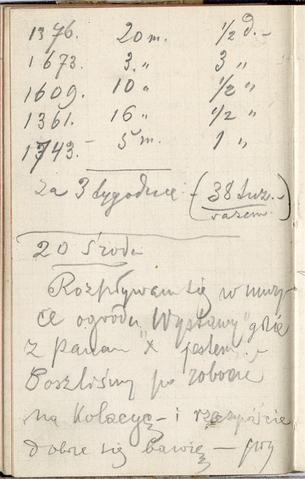 1376. 20 m. 1/2 d.-
1673. 3 „ 3 „
1609. 10 „ 1/2 „
1361. 16 „ 1/2 „
1743.- 5 m. 1 „
za 3 tygodnie - (38 tuz.-
razem
20 Środa
Rozpływam się w muzy-
ce ogrodu „Wystawy" gdzie
z panem "X" jestem.-
Poszliśmy po robocie
na Kolacyę - i
dobrze się bawię - przy